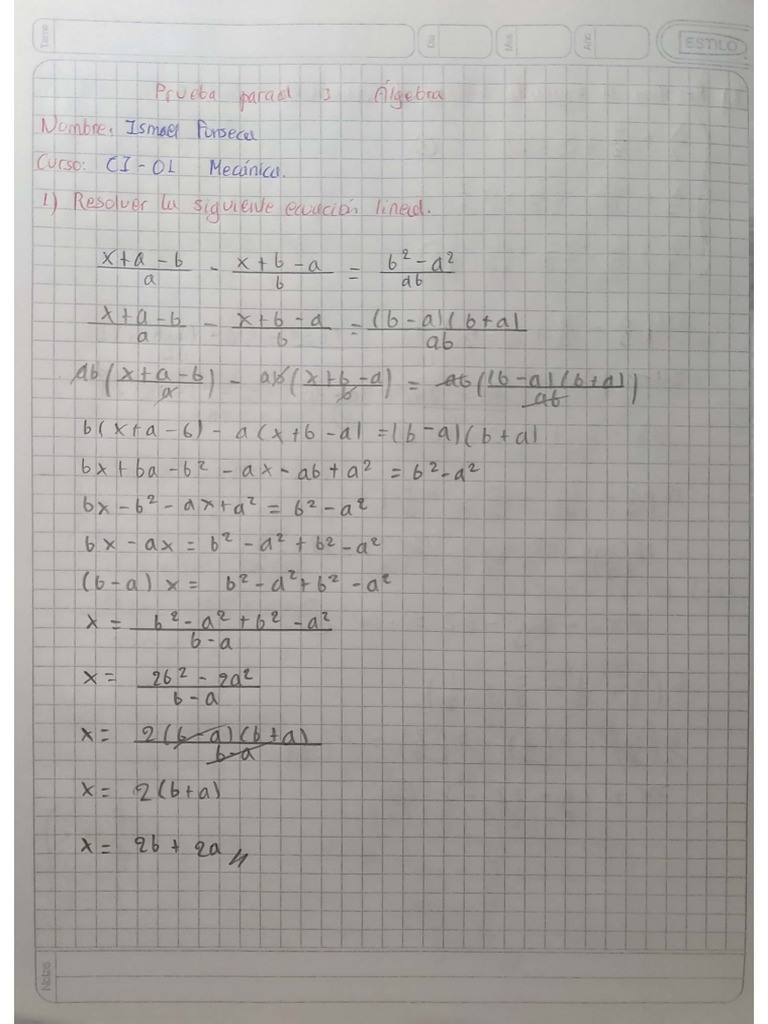 Tema
Día
Mes
Año
ESTILO
Prueba parcial 3 Álgebra
Nombre: Ismael Fonseca
Curso: CI-01 Mecánica.
1) Resolver la siguiente ecuación lineal.
(x+a-b)/a - (x+b-a)/b = (b²-a²)/ab
(x+a-b)/a - (x+b-a)/b = (b-a)(b+a)/ab
ab((x+a-b)/a) - ab((x+b-a)/b) = ab((b-a)(b+a)/ab)
b(x+a-b) - a(x+b-a) = (b-a)(b+a)
bx+ba-b²-ax-ab+a² = b²-a²
bx-b²-ax+a² = b²-a²
bx-ax = b²-a²+b²-a²
(b-a)x = b²-a²+b²-a²
x = (b²-a²+b²-a²)/(b-a)
x = (2b²-2a²)/(b-a)
x = 2(b-a)(b+a)/(b-a)
x = 2(b+a)
x = 2b+2a //
Notas